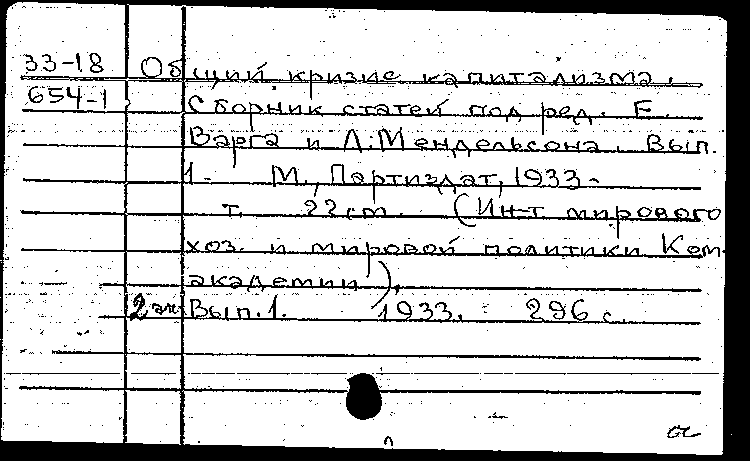 33-18 Общий кризис капитализма.
654-1 Сборник статей под ред. Е.
Варга и Л. Мендельсона. Вып.
1- М., Партиздат, 1933-
т. 22 см. (Ин-т мирового
хоз. и мировой политики Ком.
академии).
2 эк. Вып. 1. 1933. 296 с.